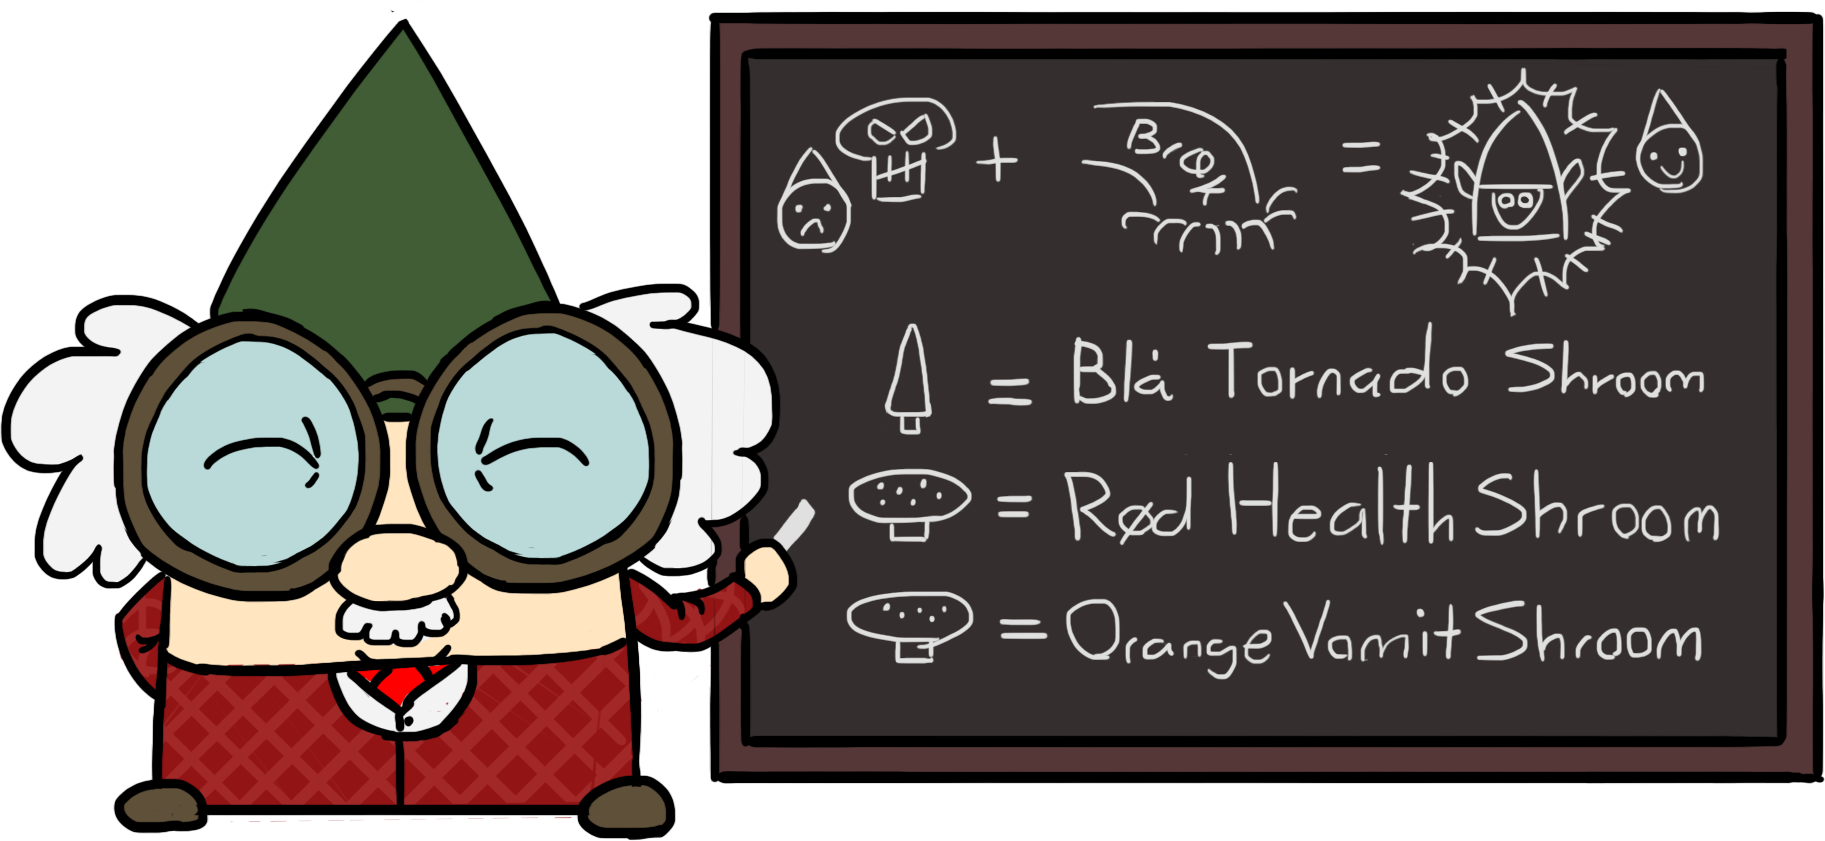 + =
= Blå Tornado Shroom
= Rød Health Shroom
= Orange Vomit Shroom